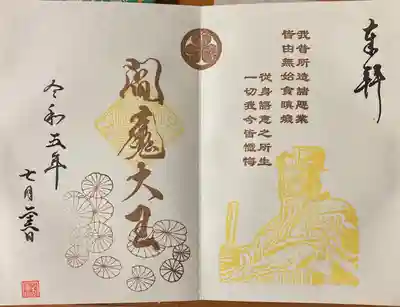 奉拝
我昔所造諸悪業
皆由無始貪瞋癡
従身語意之所生
一切我今皆懺悔
閻魔大王
令和五年
七月